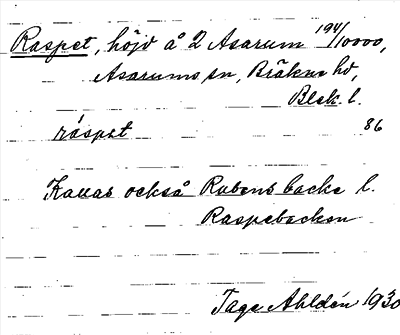 Raspet, höjd å 2 Asarum 194/10000,
Asarums sn, Bräkne hd,
Blek. l.
ráspet 86
Kallas också Rabens backe l.
Raspebacken
Tage Ahldén 1930